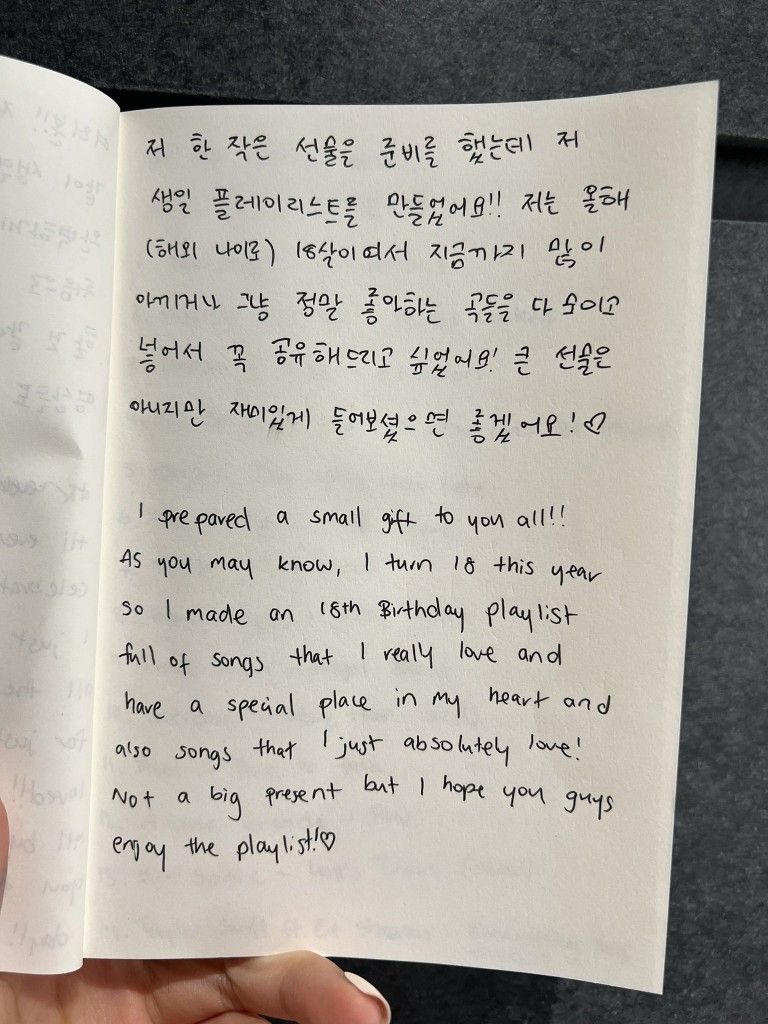 저 한 작은 선물을 준비를 했는데 저
생일 플레이리스트를 만들었어요!! 저는 올해
(해외 나이로) 18살이여서 지금까지 많이
아끼거나 그냥 정말 좋아하는 곡들을 다 모이고
넣어서 꼭 공유해드리고 싶었어요! 큰 선물은
아니지만 재미있게 들어보셨으면 좋겠어요!♡
I prepared a small gift to you all!!
As you may know, I turn 18 this year
so I made an 18th Birthday playlist
full of songs that I really love and
have a special place in my heart and
also songs that I just absolutely love!
Not a big present but I hope you guys
enjoy the playlist!♡